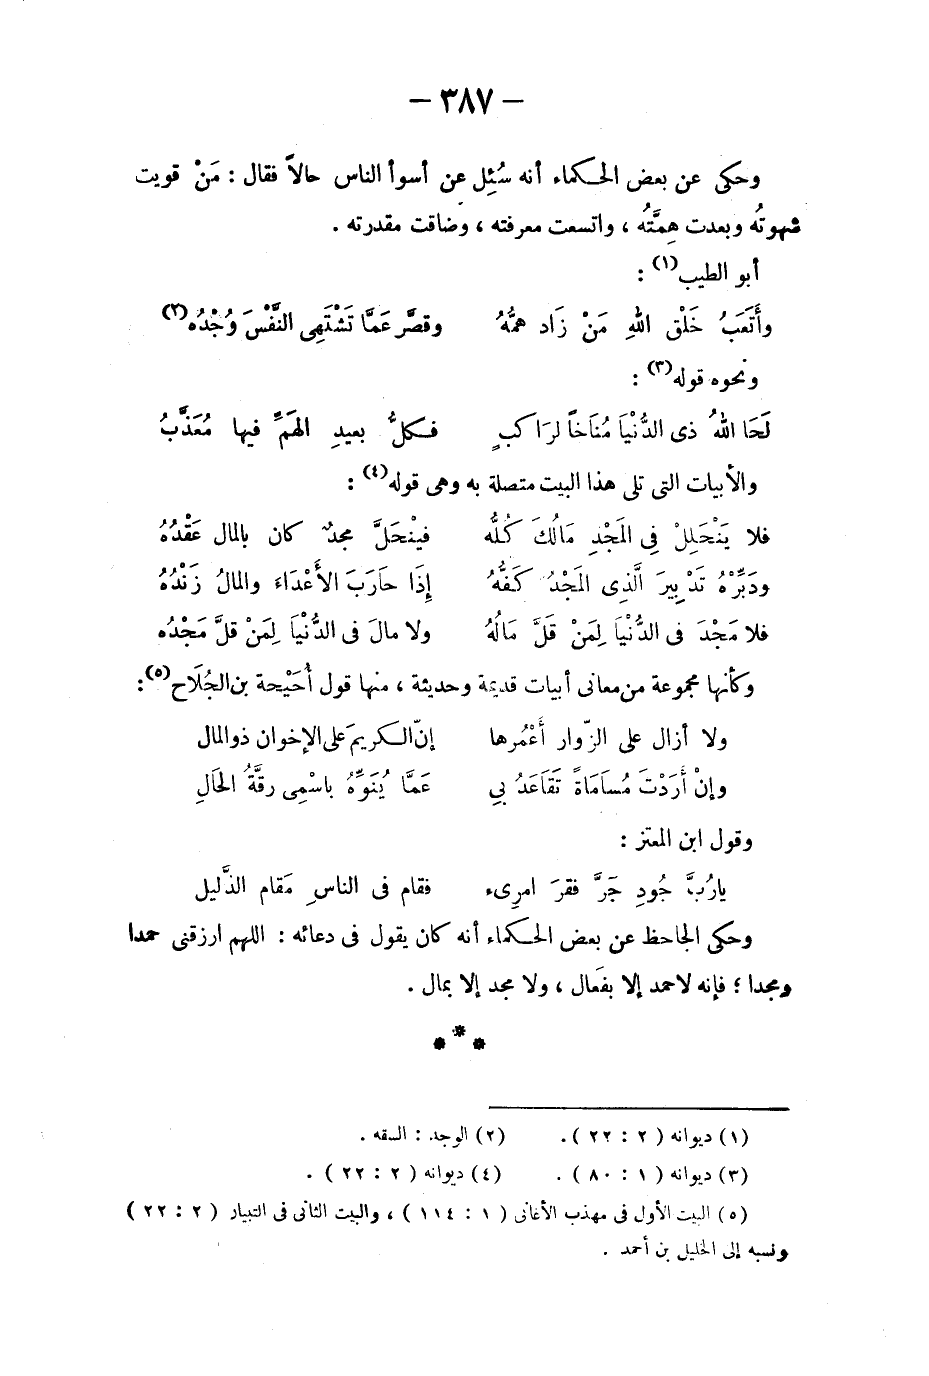 — ٣٨٧ —
وحكى عن بعض الحكماء أنه سُئِل عن أسوأ الناس حالاً فقال : مَنْ قويت
شهوتُه وبعدت هِمَّتُه ، واتسعت معرفته ، وضاقت مقدرته .
أبو الطيب(١) :
وأَتْعَبُ خَلْق اللهِ مَنْ زَاد همُّهُ وقصَّر عَمَّا تَشْتَهِى النَّفْسَ وُجْدُه(٢)
ونحوه قوله(٣) :
لَحَا اللهُ ذى الدُّنْيَا مُنَاخاً لرَاكبٍ فكلُّ بعيدِ الهَمِّ فيها مُعَذَّبُ
والأبيات التى تلى هذا البيت متصلة به وهى قوله(٤) :
فلا يَنْحَلِلْ فِى المَجْدِ مَالُكَ كُلُّه فيَنْحَلَّ مجدٌ كان بالمال عَقْدُهُ
ودَبِّرْهُ تَدْبِيرَ الَّذِى المَجْدُ كَفُّهُ إِذَا حَارَبَ الأَعْدَاءَ والمالُ زَنْدُهُ
فلا مَجْدَ فى الدُّنْيَا لِمَنْ قَلَّ مَالُهُ ولا مالَ فى الدُّنْيَا لِمَنْ قلَّ مَجْدُه
وكأنها مجموعة من معانى أبيات قديمة وحديثة ، منها قول أُحَيْحة بن الجُلَاح(٥) :
ولا أزال على الزّوار أَعْمُرها إنّ الكريمَ على الإخوان ذو المال
وإنْ أَرَدْتَ مُسَامَاةً تَقَاعَدُ بِي عَمَّا يُنَوِّهُ باسْمِى رقَّةُ الحَالِ
وقول ابن المعتز :
يارُبَّ جُودِ جَرَّ فقرَ امرِىء فقام فى الناسِ مَقام الذَّليل
وحكى الجاحظ عن بعض الحكماء أنه كان يقول فى دعائه : اللهم ارزقنى حمدا
ومجدا ؛ فإنه لا حمد إلا بفَعال ، ولا مجد إلا بمال .
* * *
(١) ديوانه ( ٢ : ٢٢ ). (٢) الوجد : السقه .
(٣) ديوانه ( ١ : ٨٠ ) . (٤) ديوانه ( ٢ : ٢٢ ) .
(٥) البيت الأول فى مهذب الأغانى ( ١ : ١١٤ ) ، والبيت الثانى فى التبيار ( ٢ : ٢٢ )
ونسبه إلى الخليل بن أحمد .